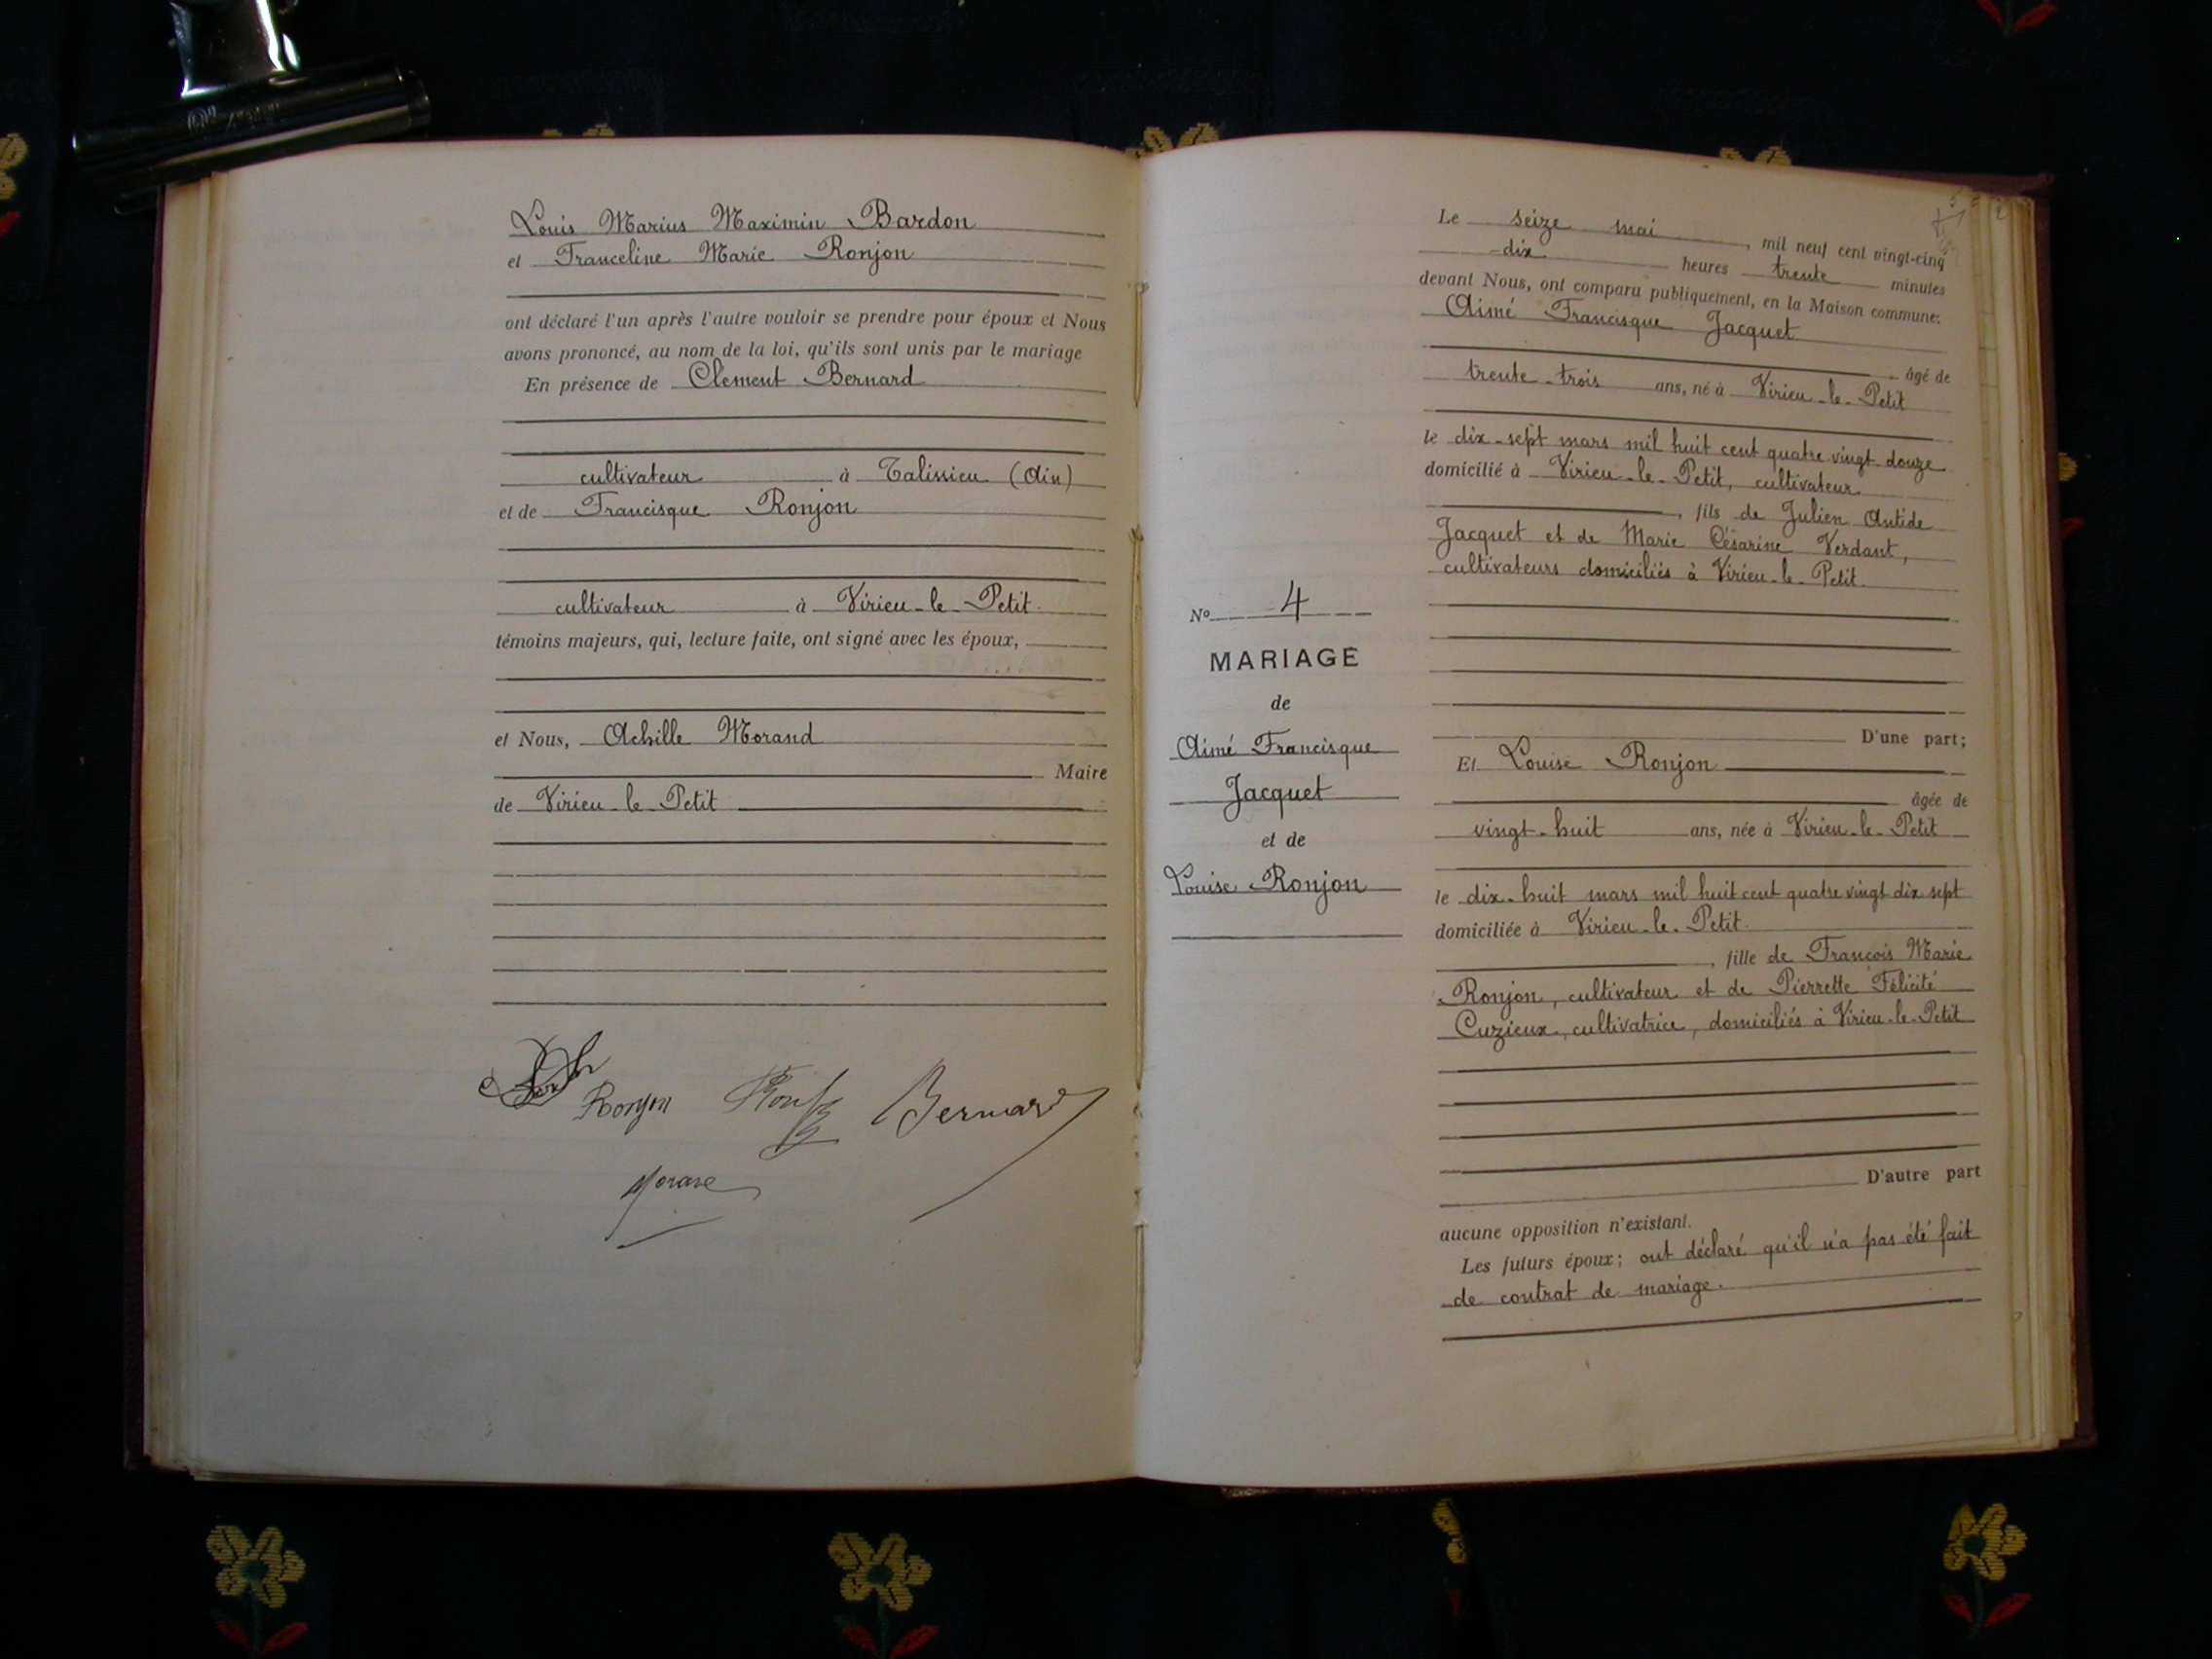 Louis Marius Maximin Bardon
et Franceline Marie Ronjon
ont déclaré l'un après l'autre vouloir se prendre pour époux et Nous
avons prononcé, au nom de la loi, qu'ils sont unis par le mariage
En présence de Clement Bernard
cultivateur à Talissieu (Ain)
et de Francisque Ronjon
cultivateur à Virieu-le-Petit
témoins majeurs, qui, lecture faite, ont signé avec les époux,
et Nous, Achille Morand
Maire
de Virieu-le-Petit
Ronjon Bernard
No 4
MARIAGE
de
Aimé Francisque
Jacquet
et de
Louise Ronjon
Le seize mai, mil neuf cent vingt-cinq
dix heures trente minutes
devant Nous, ont comparu publiquement, en la Maison commune:
Aimé Francisque Jacquet
âgé de
trente-trois ans, né à Virieu-le-Petit
le dix-sept mars mil huit cent quatre vingt douze
domicilié à Virieu-le-Petit, cultivateur
, fils de Julien Antide
Jacquet et de Marie Césarine Verdant,
cultivateurs domiciliés à Virieu-le-Petit.
D'une part;
Et Louise Ronjon
âgée de
vingt-huit ans, née à Virieu-le-Petit
le dix-huit mars mil huit cent quatre vingt dix sept
domiciliée à Virieu-le-Petit.
, fille de François Marie
Ronjon, cultivateur et de Pierrette Félicité
Cuzieux, cultivatrice, domiciliés à Virieu-le-Petit
D'autre part
aucune opposition n'existant.
Les futurs époux; ont déclaré qu'il n'a pas été fait
de contrat de mariage.